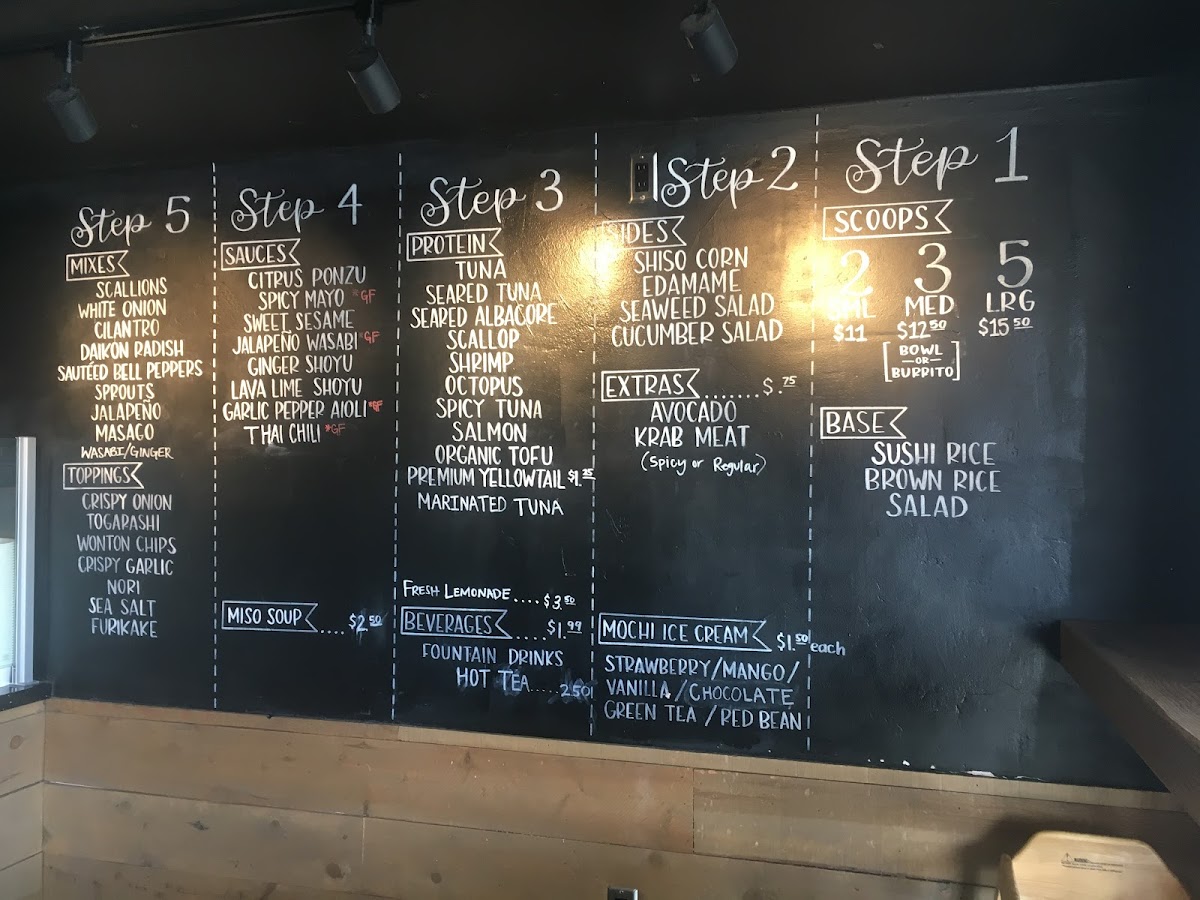 Step 5
MIXES
SCALLIONS
WHITE ONION
CILANTRO
DAIKON RADISH
SAUTÉED BELL PEPPERS
SPROUTS
JALAPEÑO
MASAGO
WASABI/GINGER
TOPPINGS
CRISPY ONION
TOGARASHI
WONTON CHIPS
CRISPY GARLIC
NORI
SEA SALT
FURIKAKE
Step 4
SAUCES
CITRUS PONZU
SPICY MAYO *GF
SWEET SESAME
JALAPEÑO WASABI *GF
GINGER SHOYU
LAVA LIME SHOYU
GARLIC PEPPER AIOLI *GF
THAI CHILI *GF
MISO SOUP .... $2.50
Step 3
PROTEIN
TUNA
SEARED TUNA
SEARED ALBACORE
SCALLOP
SHRIMP
OCTOPUS
SPICY TUNA
SALMON
ORGANIC TOFU
PREMIUM YELLOWTAIL $1.25
MARINATED TUNA
FRESH LEMONADE .... $3.50
BEVERAGES ..... $1.99
FOUNTAIN DRINKS
HOT TEA ..... 2.50
Step 2
SIDES
SHISO CORN
EDAMAME
SEAWEED SALAD
CUCUMBER SALAD
EXTRAS ....... $.75
AVOCADO
KRAB MEAT
(Spicy or Regular)
MOCHI ICE CREAM $1.50 each
STRAWBERRY/MANGO/
VANILLA/CHOCOLATE
GREEN TEA/RED BEAN
Step 1
SCOOPS
2 3 5
SML MED LRG
$11 $12.50 $15.50
[BOWL
-OR-
BURRITO]
BASE
SUSHI RICE
BROWN RICE
SALAD